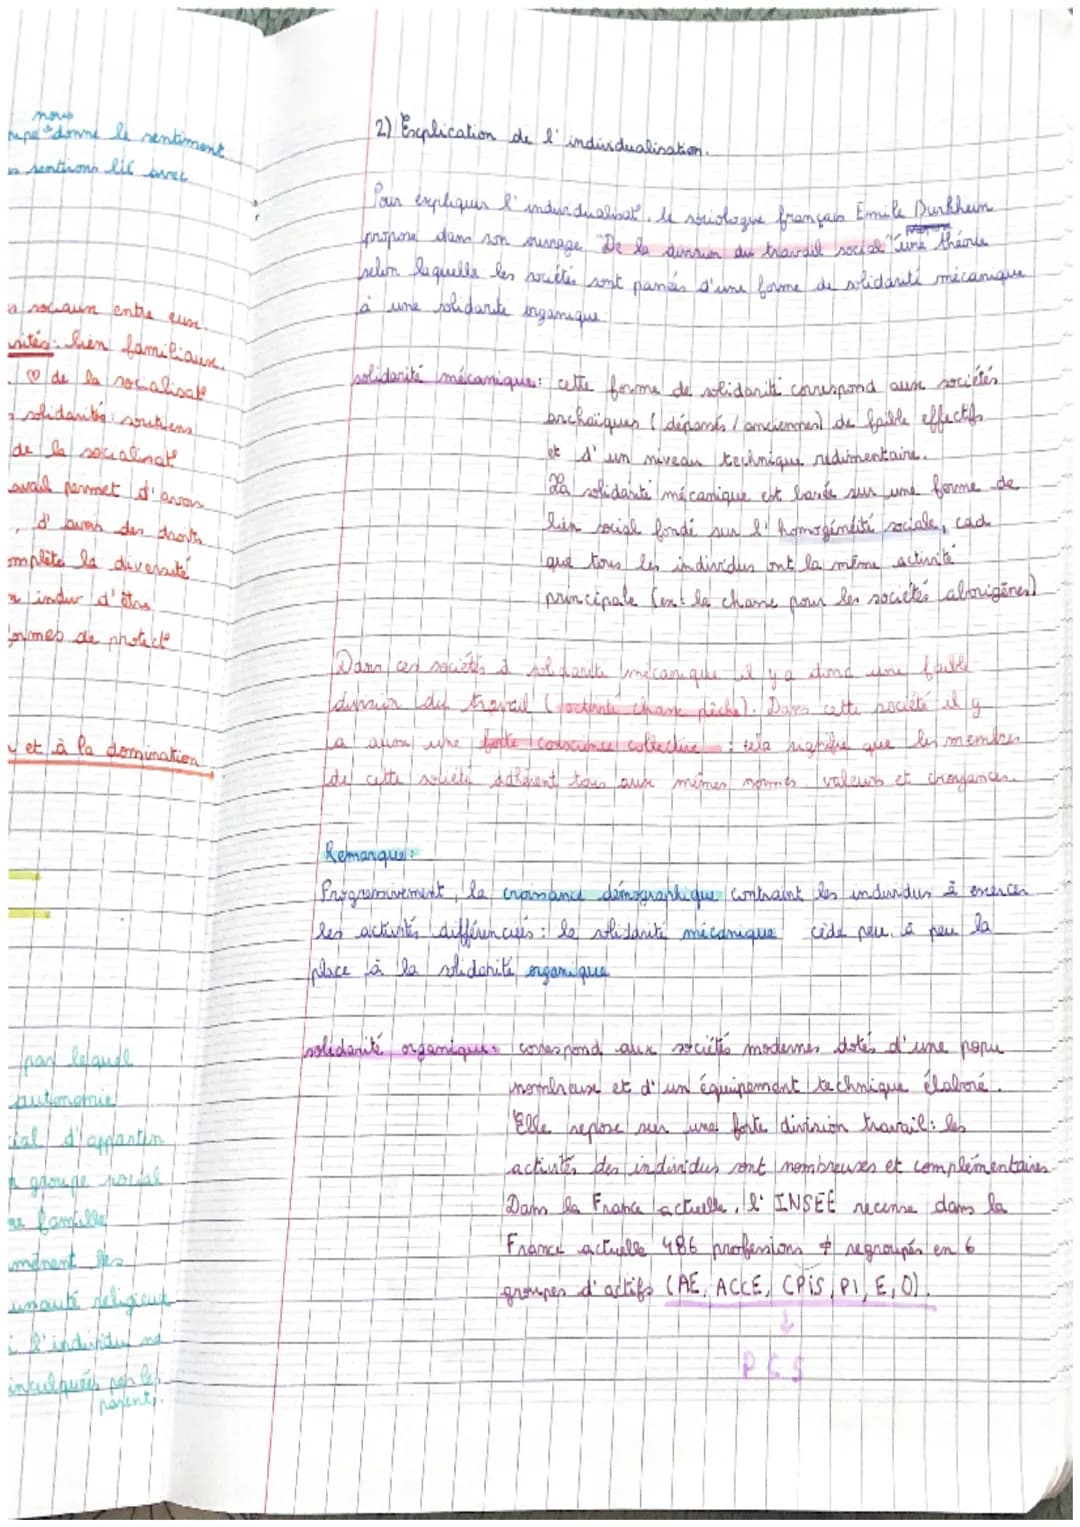 nous
donne le sentiment
sentirons lié avec
sociaux entre eux.
lien familiaux.
♡ de la socialisat°
solidarités: soutiens
de la socialisat°
permet d'avoir
, d' avoir des droits
la diversité
indiv d'être
formes de protect°
et à la domination
par lequel
autonomie
d'apparten
groupe social
famille
mènent les
religieux
l'individu
inculquées par les
parents.
2) Explication de l' individualisation.
Pour expliquer l'individualisat°, le sociologue français Emile Durkheim
propose dans son ouvrage "De la division du travail social" une théorie
selon laquelle les sociétés sont passées d'une forme de solidarité mécanique
à une solidarité organique
solidarité mécanique: cette forme de solidarité correspond aux sociétés
archaïques (dépassés / anciennes) de faible effectifs
et d'un niveau technique rudimentaire.
La solidarité mécanique est basée sur une forme de
lien social fondé sur l' homogénéité sociale, cad
que tous les individus ont la même activité
principale (ex: la chasse pour les sociétés aborigènes)
Dans ces sociétés à solidarité mécanique il y a donc une faible
division du travail (activité chasse pêche). Dans cette société il y
a aussi une forte conscience collective : cela signifie que les membres
de cette société adhèrent tous aux mêmes normes valeurs et croyances.
Remarque:
Progressivement, la croissance démographique contraint les individus à exercer
les activités différenciés: la solidarité mécanique cède peu à peu la
place à la solidarité organique
solidarité organique: correspond aux sociétés modernes dotés d'une popu
nombreuse et d'un équipement technique élaboré.
Elle repose sur une forte division travail: les
activités des individus sont nombreuses et complémentaires
Dans la France actuelle, l' INSEE recense dans la
France actuelle 486 professions ≠ regroupés en 6
groupes d'actifs (AE, ACCE, CPIS, PI, E, O).
↓
PCS